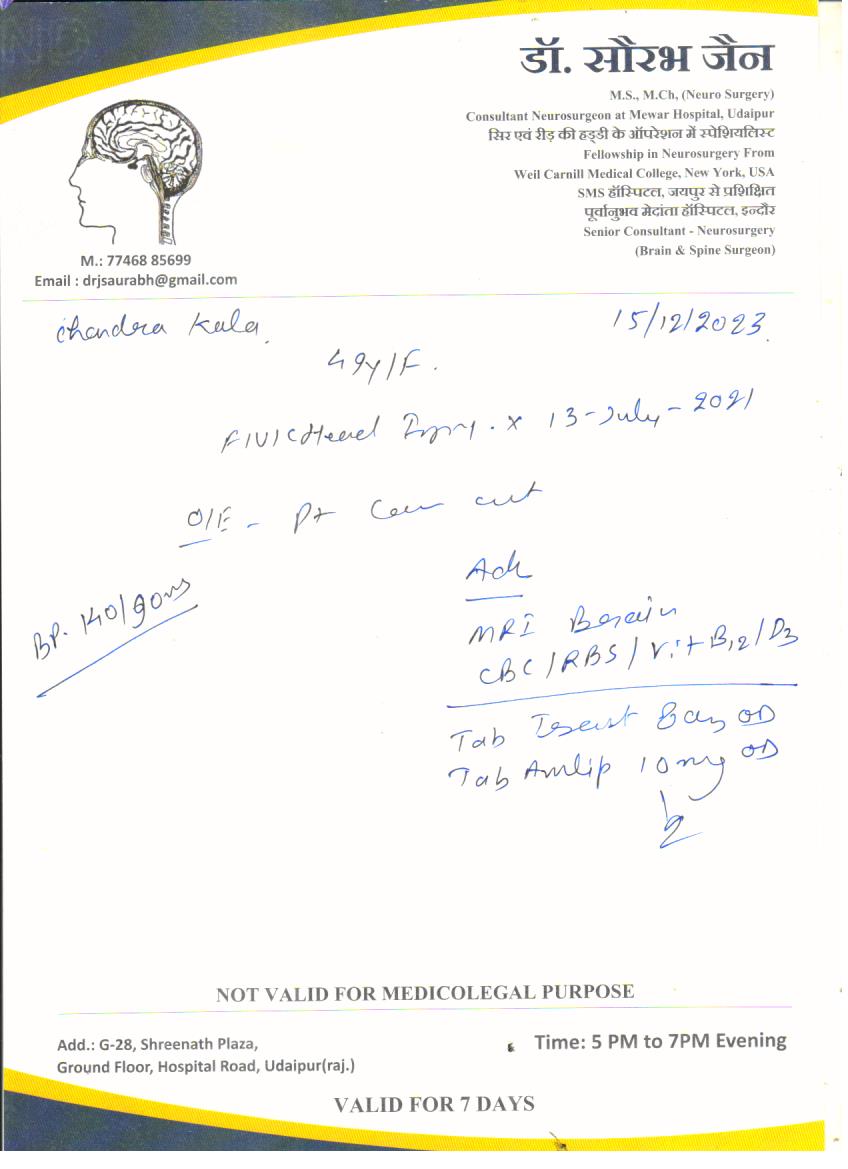 डॉ. सौरभ जैन
M.S., M.Ch, (Neuro Surgery)
Consultant Neurosurgeon at Mewar Hospital, Udaipur
सिर एवं रीड़ की हड्डी के ऑपरेशन में स्पेशियलिस्ट
Fellowship in Neurosurgery From
Weil Carnill Medical College, New York, USA
SMS हॉस्पिटल, जयपुर से प्रशिक्षित
पूर्वानुभव मेदांता हॉस्पिटल, इन्दौर
Senior Consultant - Neurosurgery
(Brain & Spine Surgeon)
M.: 77468 85699
Email : drjsaurabh@gmail.com
Chandra Kala
15/12/2023
49y/F.
F/U/C Head Injury. x 13-July-2021
O/E - Pt
BP. 140/90
Adv
MRI Brain
CBC/RBS/Vit B12/D3
Tab OD
Tab Amlip 10mg OD
NOT VALID FOR MEDICOLEGAL PURPOSE
Add.: G-28, Shreenath Plaza,
Ground Floor, Hospital Road, Udaipur(raj.)
Time: 5 PM to 7PM Evening
VALID FOR 7 DAYS